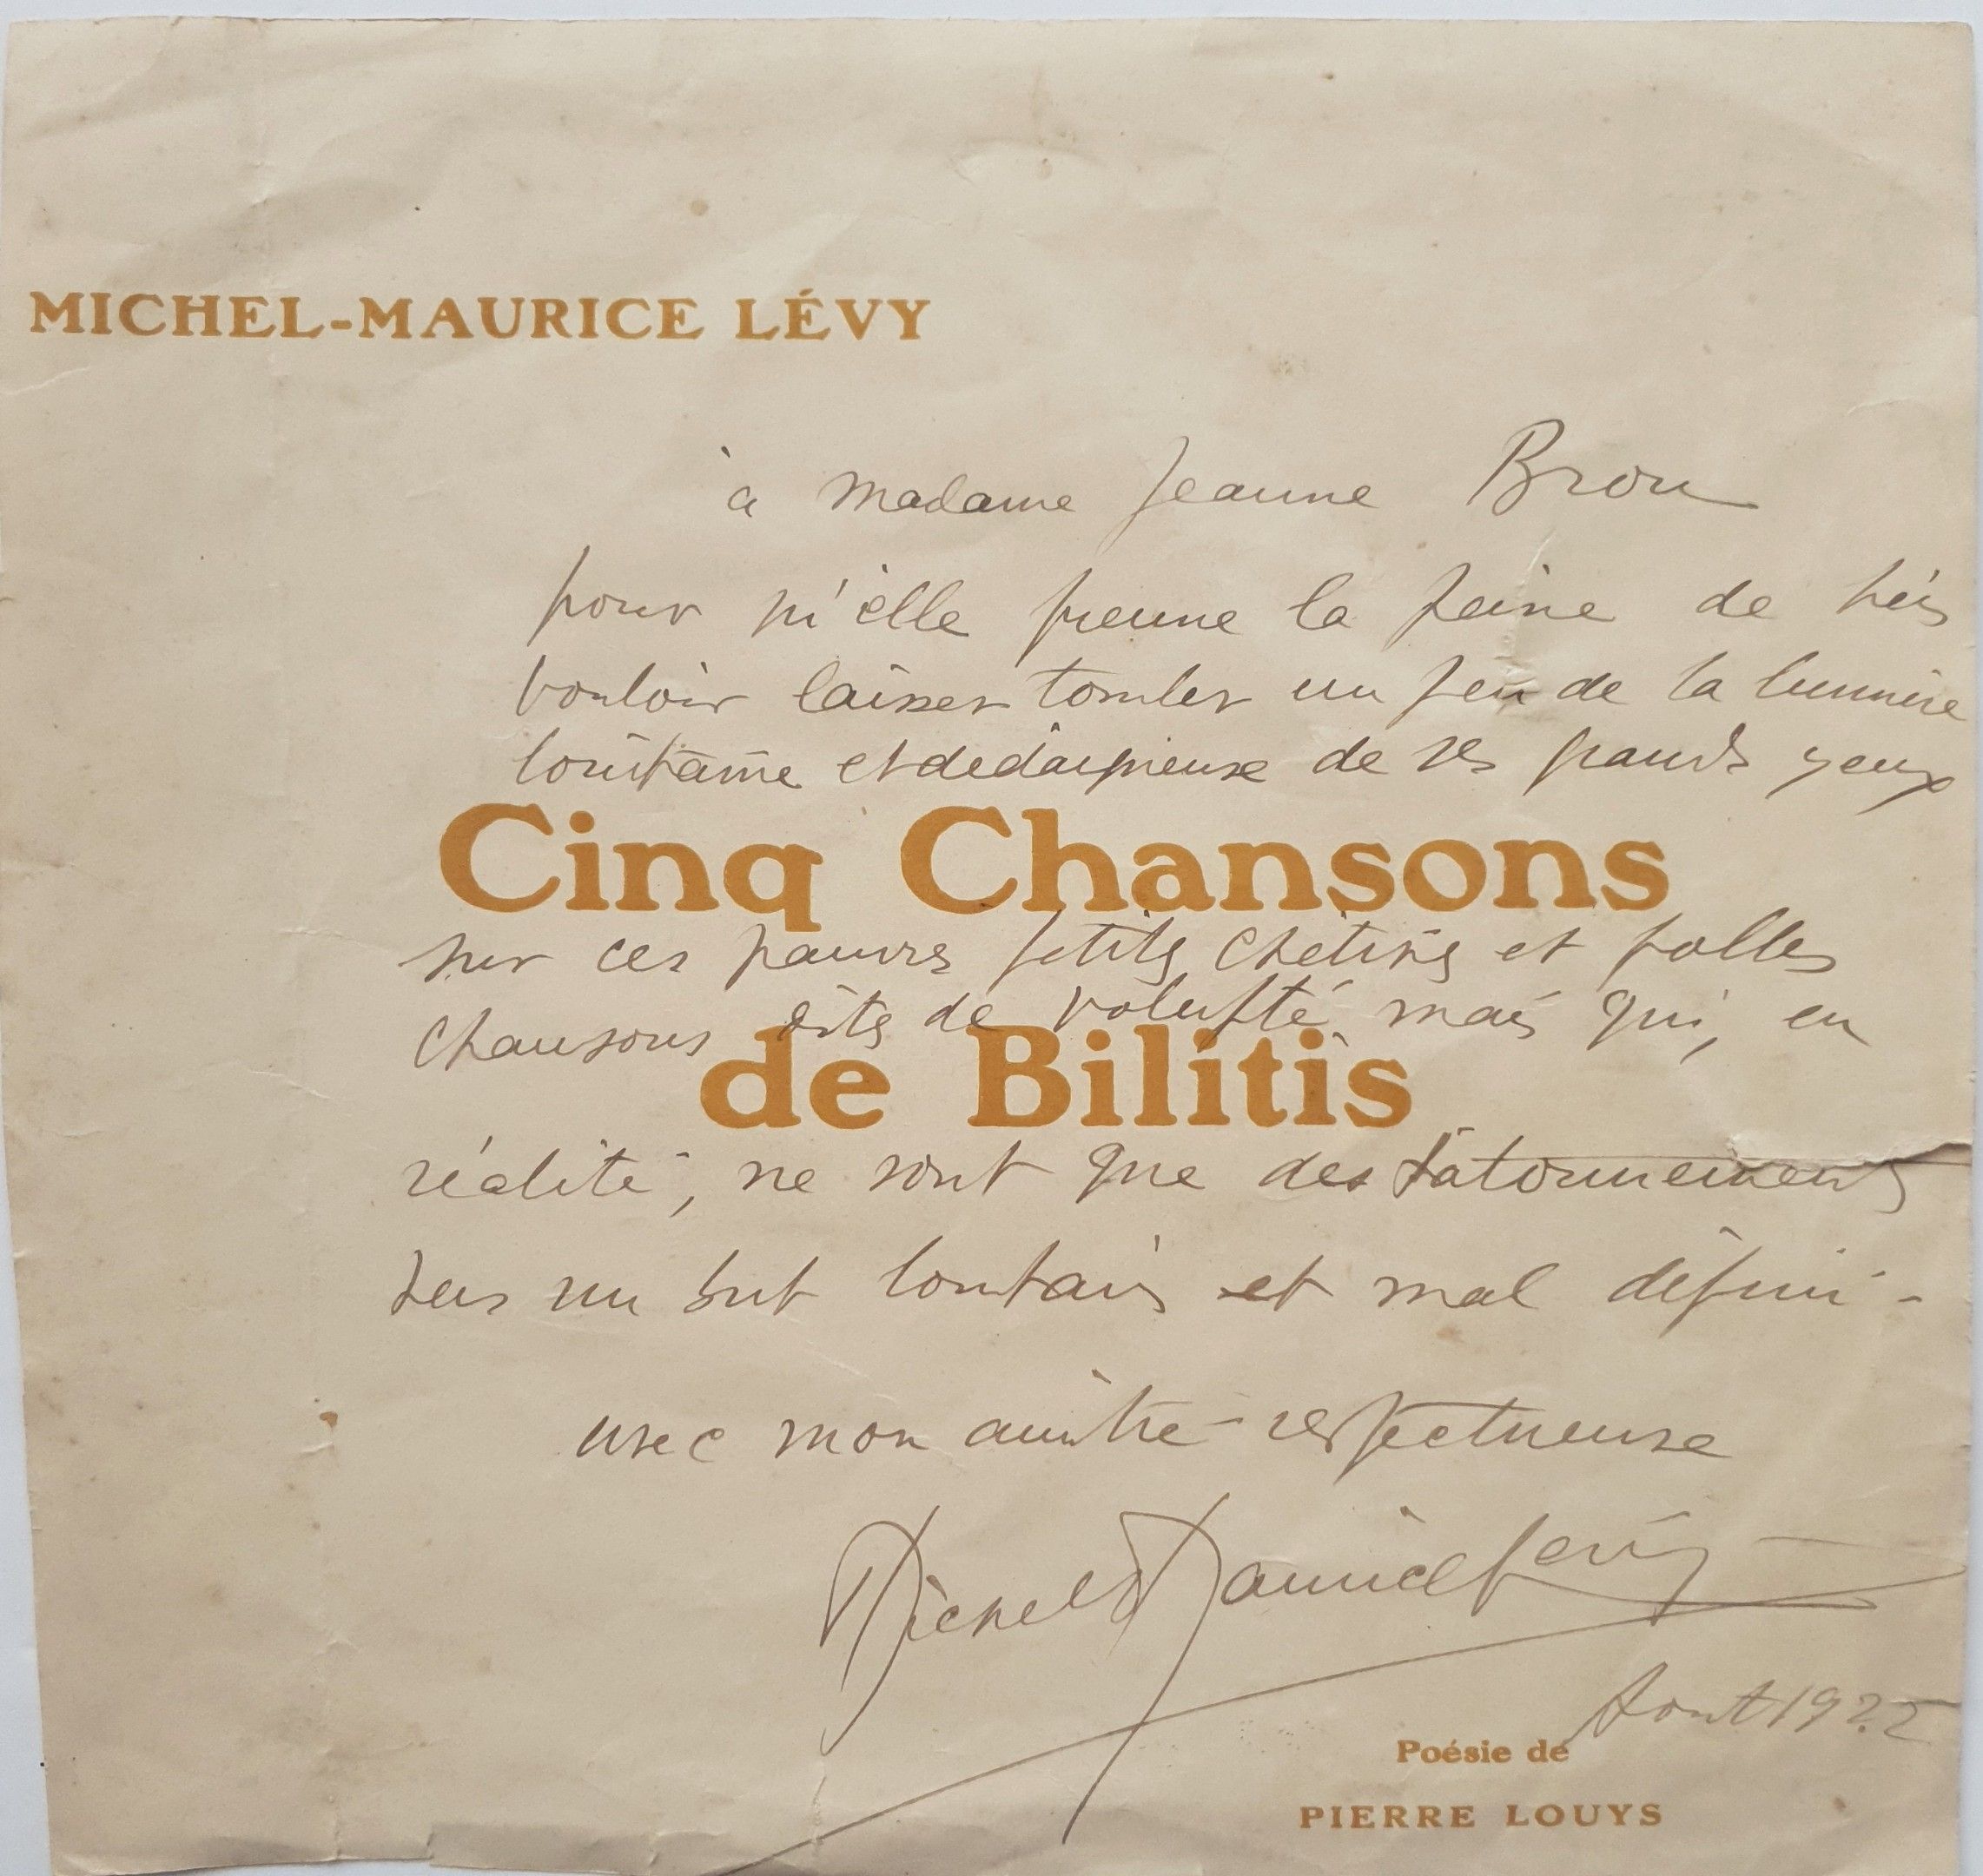 MICHEL-MAURICE LÉVY
à Madame Jeanne Brou
pour qu'elle prenne la peine de
vouloir laisser tomber un peu de la lumière
lointaine et dedaigneuse de ses grands yeux
Cinq Chansons
sur ces pauvres petites chétives et folles
chansons dites de volupté mais qui, en
de Bilitis
réalité, ne sont que des tatonnements
vers un but lointain et mal défini -
avec mon amitié respectueuse
Michel Maurice Levy
Aout 1922
Poésie de
PIERRE LOUYS